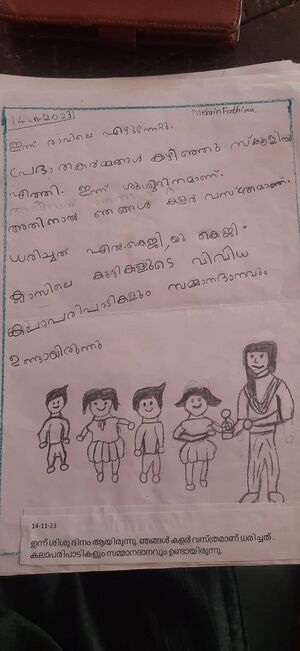 14-11-2023
Mehrin Fathima
ഇന്ന് രാവിലെ എഴുന്നേറ്റു.
പ്രഭാതകർമ്മങ്ങൾ കഴിഞ്ഞു സ്കൂളിൽ
എത്തി. ഇന്ന് ശിശുദിനമാണ്.
അതിനാൽ ഞങ്ങൾ കളർ വസ്ത്രമാണ്
ധരിച്ചത് എൽ.കെജി, യു കെജി.
ക്ലാസിലെ കുട്ടികളുടെ വിവിധ
കലാപരിപാടികളും സമ്മാനദാനവും
ഉണ്ടായിരുന്നു
14-11-23
ഇന്ന് ശിശു ദിനം ആയിരുന്നു. ഞങ്ങൾ കളർ വസ്ത്രമാണ് ധരിച്ചത് .
കലാപരിപാടികളും സമ്മാനദാനവും ഉണ്ടായിരുന്നു.